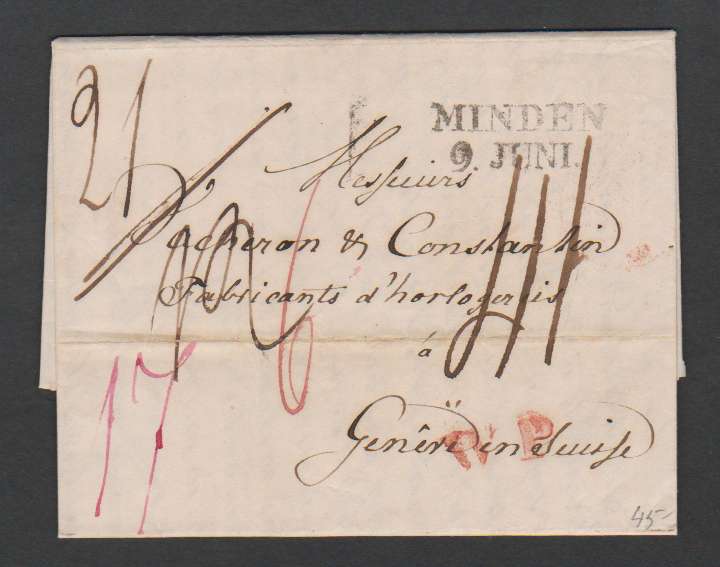 21
MINDEN
9. JUNI.
Messieurs
Vacheron & Constantin
Fabricants d'horlogeries
6
à
17
Genêve en Suisse
P
45-